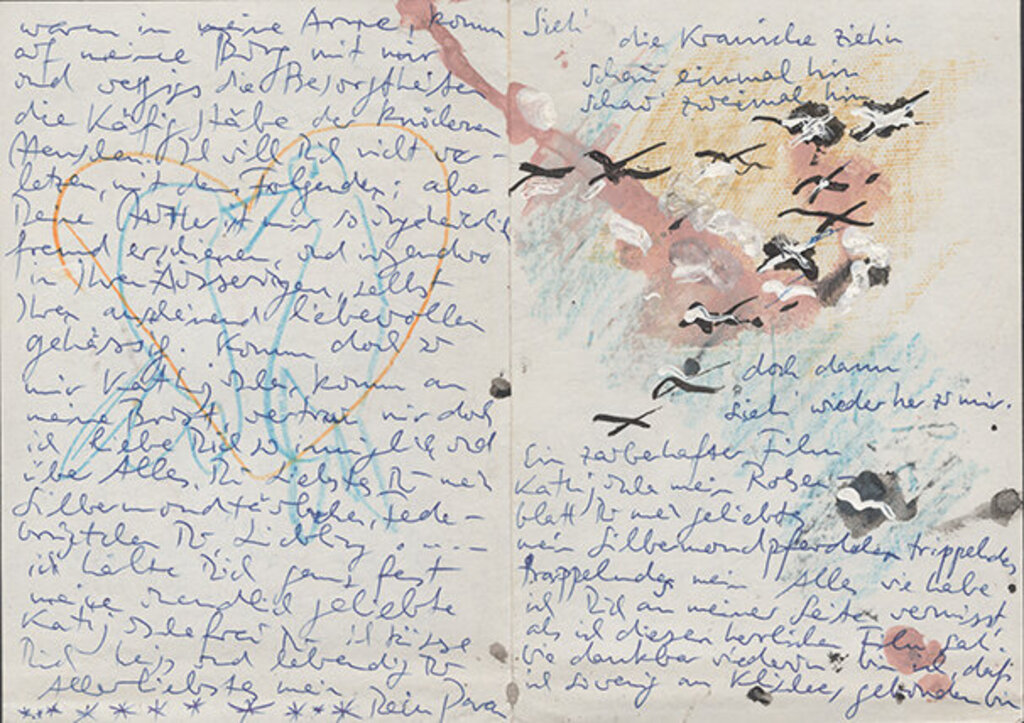 warm in meine Arme, komm
auf meine Burg mit mir
und vergiss die Besorgtheiten
die Käfigstäbe der knöchernen
Menschen. Ich will Dich nicht ver-
letzen, mit dem Folgenden; aber
Deine Mutter ist mir so ungeheuerlich
fremd erschienen, und irgendwo
in Ihren Äusserungen, selbst
Ihren anscheinend liebevollen
gehässig. Komm doch zu
mir Kathi, komm an
meine Brust vertrau mir doch
ich liebe Dich so innig lich und
über Alles. Du Liebstes Du mein
Silbermondtäubchen, Feder-
brüstchen Du, Liebling . . ----
ich halte Dich ganz fest
meine unendlich geliebte
Dich leis und lebendig Du
Allerliebstes mein
Dein
Sieh'
die Kraniche ziehn
schau einmal hin
schau' zweimal hin
doch dann
sieh' wieder her zu mir.
Ein zauberhafter Film
mein Rosen-
blatt Du mein geliebtes
mein Silbermondpferdchen trippelndes
trappelndes mein Alles wie habe
ich Dich an meiner Seite vermisst
als ich diesen herrlichen Film sah.
Wie dankbar wiederum bin ich, daß
ich so wenig an Klischee, gebunden bin